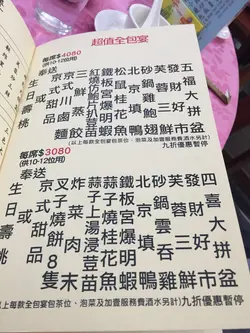 超值全包宴
每席$4080
(供10-12位用)
五福大拼盆
發財好市
芙蓉三鮮
砂鍋雞鮑翅
北京填鴨
松鼠桂花魚
鐵板宮爆明蝦
紅燒仿鮑扒荳苗
三鮮蒸餃
京式川鹵麵
京式甜品
或
奉送生日壽桃
(以上每款全包宴包茶位、泡菜及加壹服務費酒水另計)
九折優惠暫停
每席$3080
(供10-12位用)
四喜大拼盆
發財好市
芙蓉三鮮
砂鍋雲吞雞
北京填鴨
鐵板宮爆明蝦
蒜子上湯浸荳苗
叉子燒餅8隻
炸菜肉末
京式甜品
或
奉送生日壽桃
以上每款全包宴包茶位、泡菜及加壹服務費酒水另計)九折優惠暫停